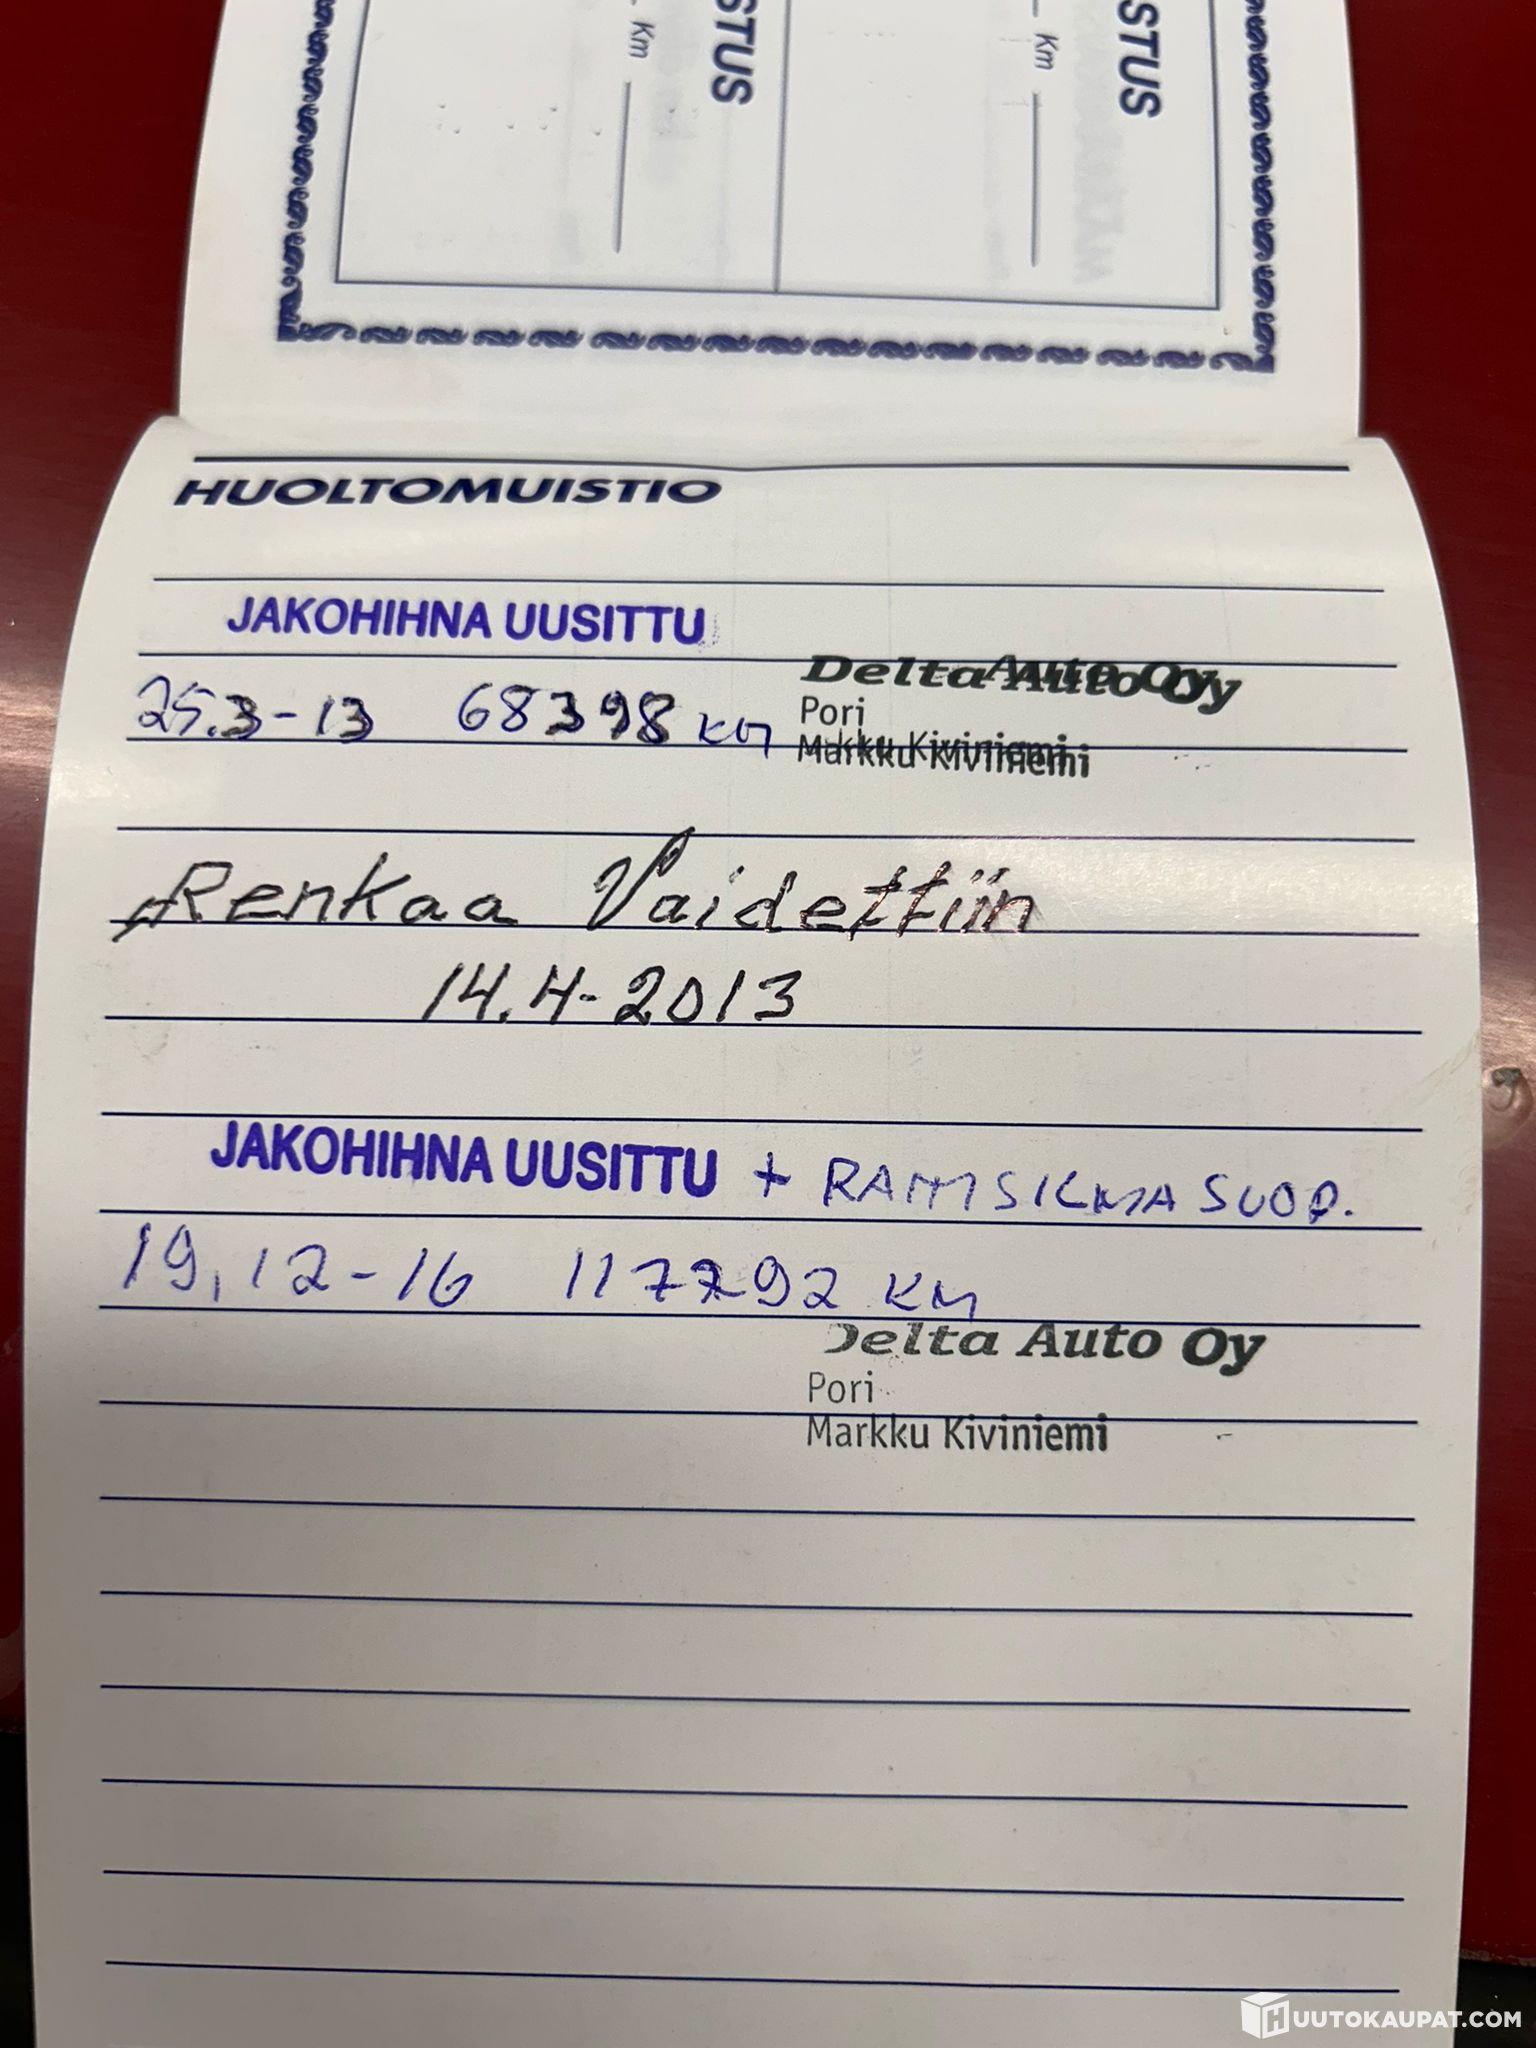 STUS
Km
STUS
Km
HUOLTOMUISTIO
JAKOHIHNA UUSITTU
25.3-13 68398 KM
Delta Auto Oy
Pori
Markku Kiviniemi
Renkaa Vaidettiin
14.4-2013
JAKOHIHNA UUSITTU + SUOD.
19.12-16 KM
Delta Auto Oy
Pori
Markku Kiviniemi
HUUTOKAUPAT.COM